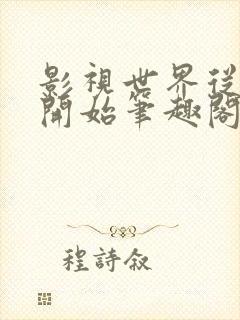 影視世界從
開始筆趣閣
程詩敘